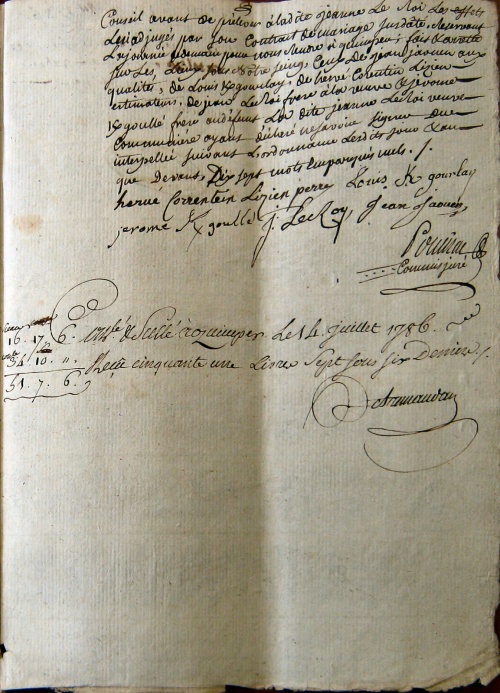 Conseil avant de prélever à ladite jeanne Le Roi Les effets
adjugés par son Contrat de mariage susdaté, Reservant
La journée de demain pour nous Rendre à quimper; fait & arreté
sur Les Lieux sous Notre seing, Ceux de jean jaouen aux
qualités, de Louis Kgourlay, de hervé Corentin Lizien
estimateurs, de jean Le Roi frere à la veuve & jerome
Kgoullé frere au defunt La dite jeanne Le Roi veuve
Communiere ayant déclaré ne savoir signer De ce
interpellée suivant L'ordonnance Lesdits jour & an
que Devant, Dix sept mots nuls ./.
hervé Correntein Lizien Louis K gourlay
jerome K goullé j. Le Roy, jean jaouen
Commis juré
16. 17. 6. de suitte à quimper Le 14 juillet 1786.
34. 10. ". Reçu cinquante une Livre Sept sous six Deniers ./.
51. 7. 6.